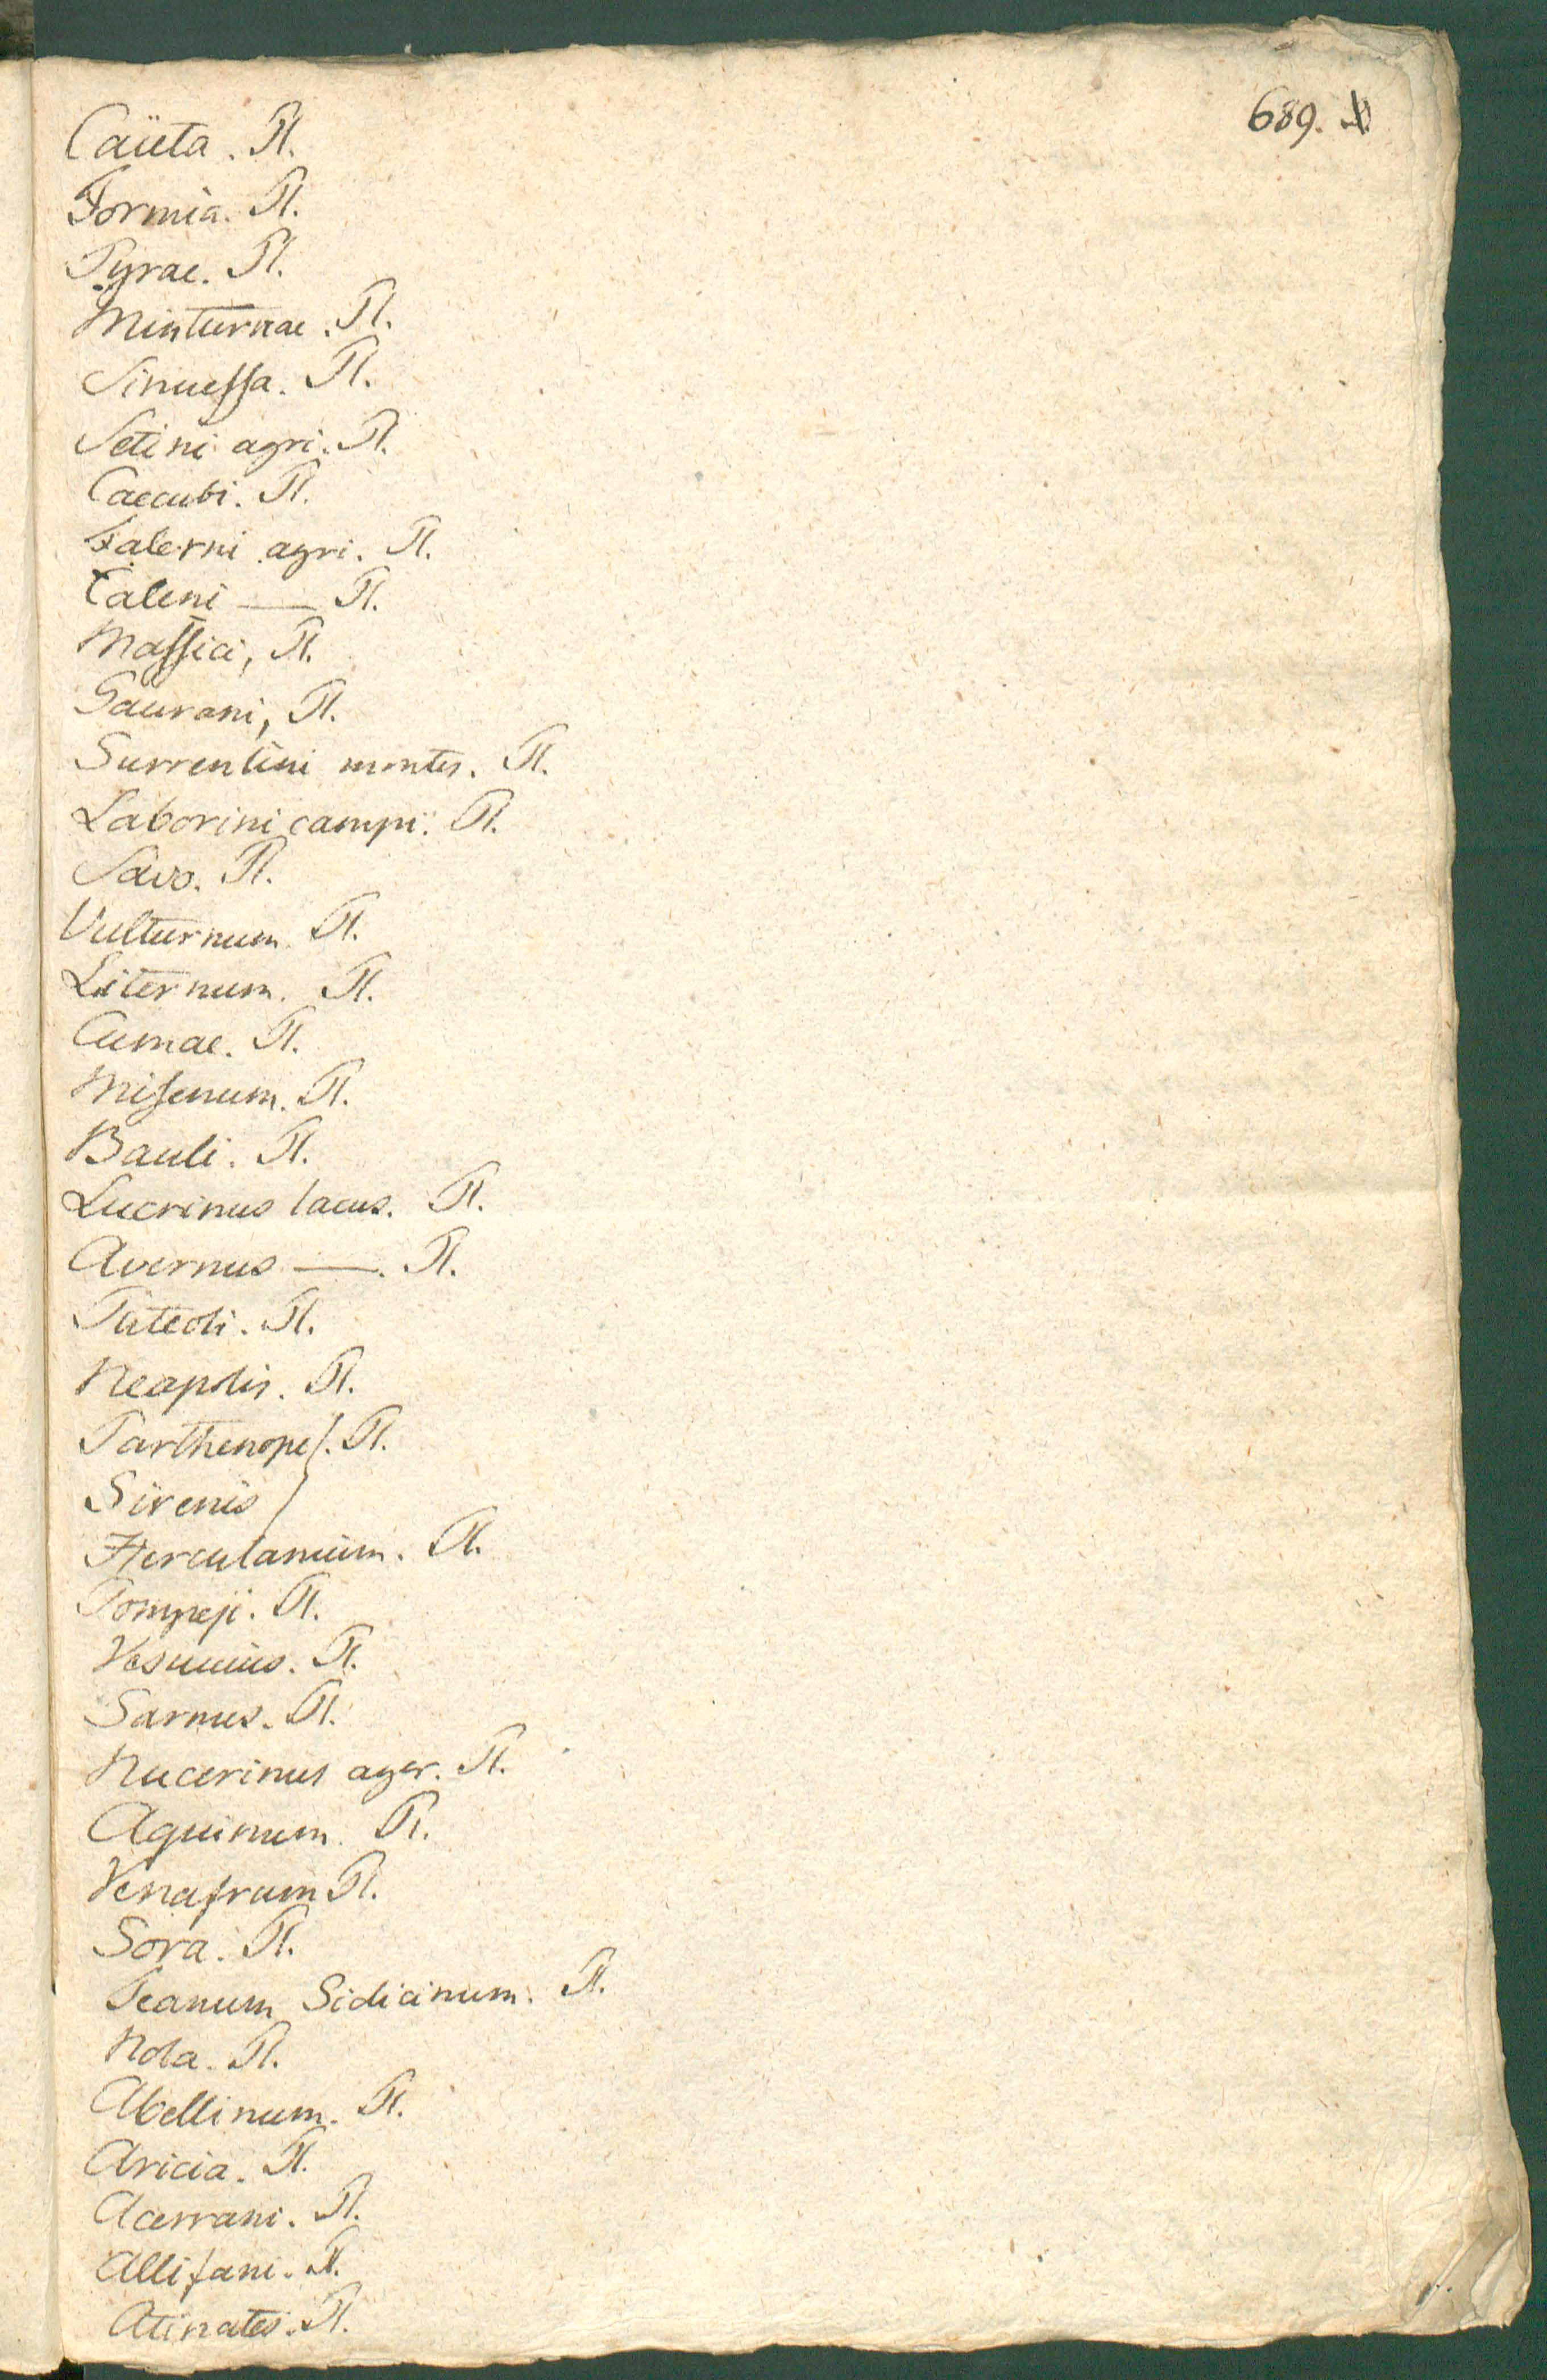 689.
Caïeta. Pl.
Formia. Pl.
Pyrae. Pl.
Minturnae. Pl.
Sinuessa. Pl.
Setini agri. Pl.
Caecubi. Pl.
Falerni agri. Pl.
Caleni — Pl.
Massici, Pl.
Gaurani, Pl.
Surrentini montes. Pl.
Laborini campi. Pl.
Savo. Pl.
Vulturnum. Pl.
Liternum. Pl.
Cumae. Pl.
Misenum. Pl.
Bauli. Pl.
Lucrinus lacus. Pl.
Avernus —. Pl.
Puteoli. Pl.
Neapolis. Pl.
Parthenope}. Pl.
Sirenis }
Herculanium. Pl.
Pompeji. Pl.
Vesuuius. Pl.
Sarnus. Pl.
Nucerinus ager. Pl.
Aquinum. Pl.
Venafrum Pl.
Sora. Pl.
Teanum Sidicinum. Pl.
Nola. Pl.
Abellinum. Pl.
Aricia. Pl.
Acerrani. Pl.
Allifani. Pl.
Atinates. Pl.